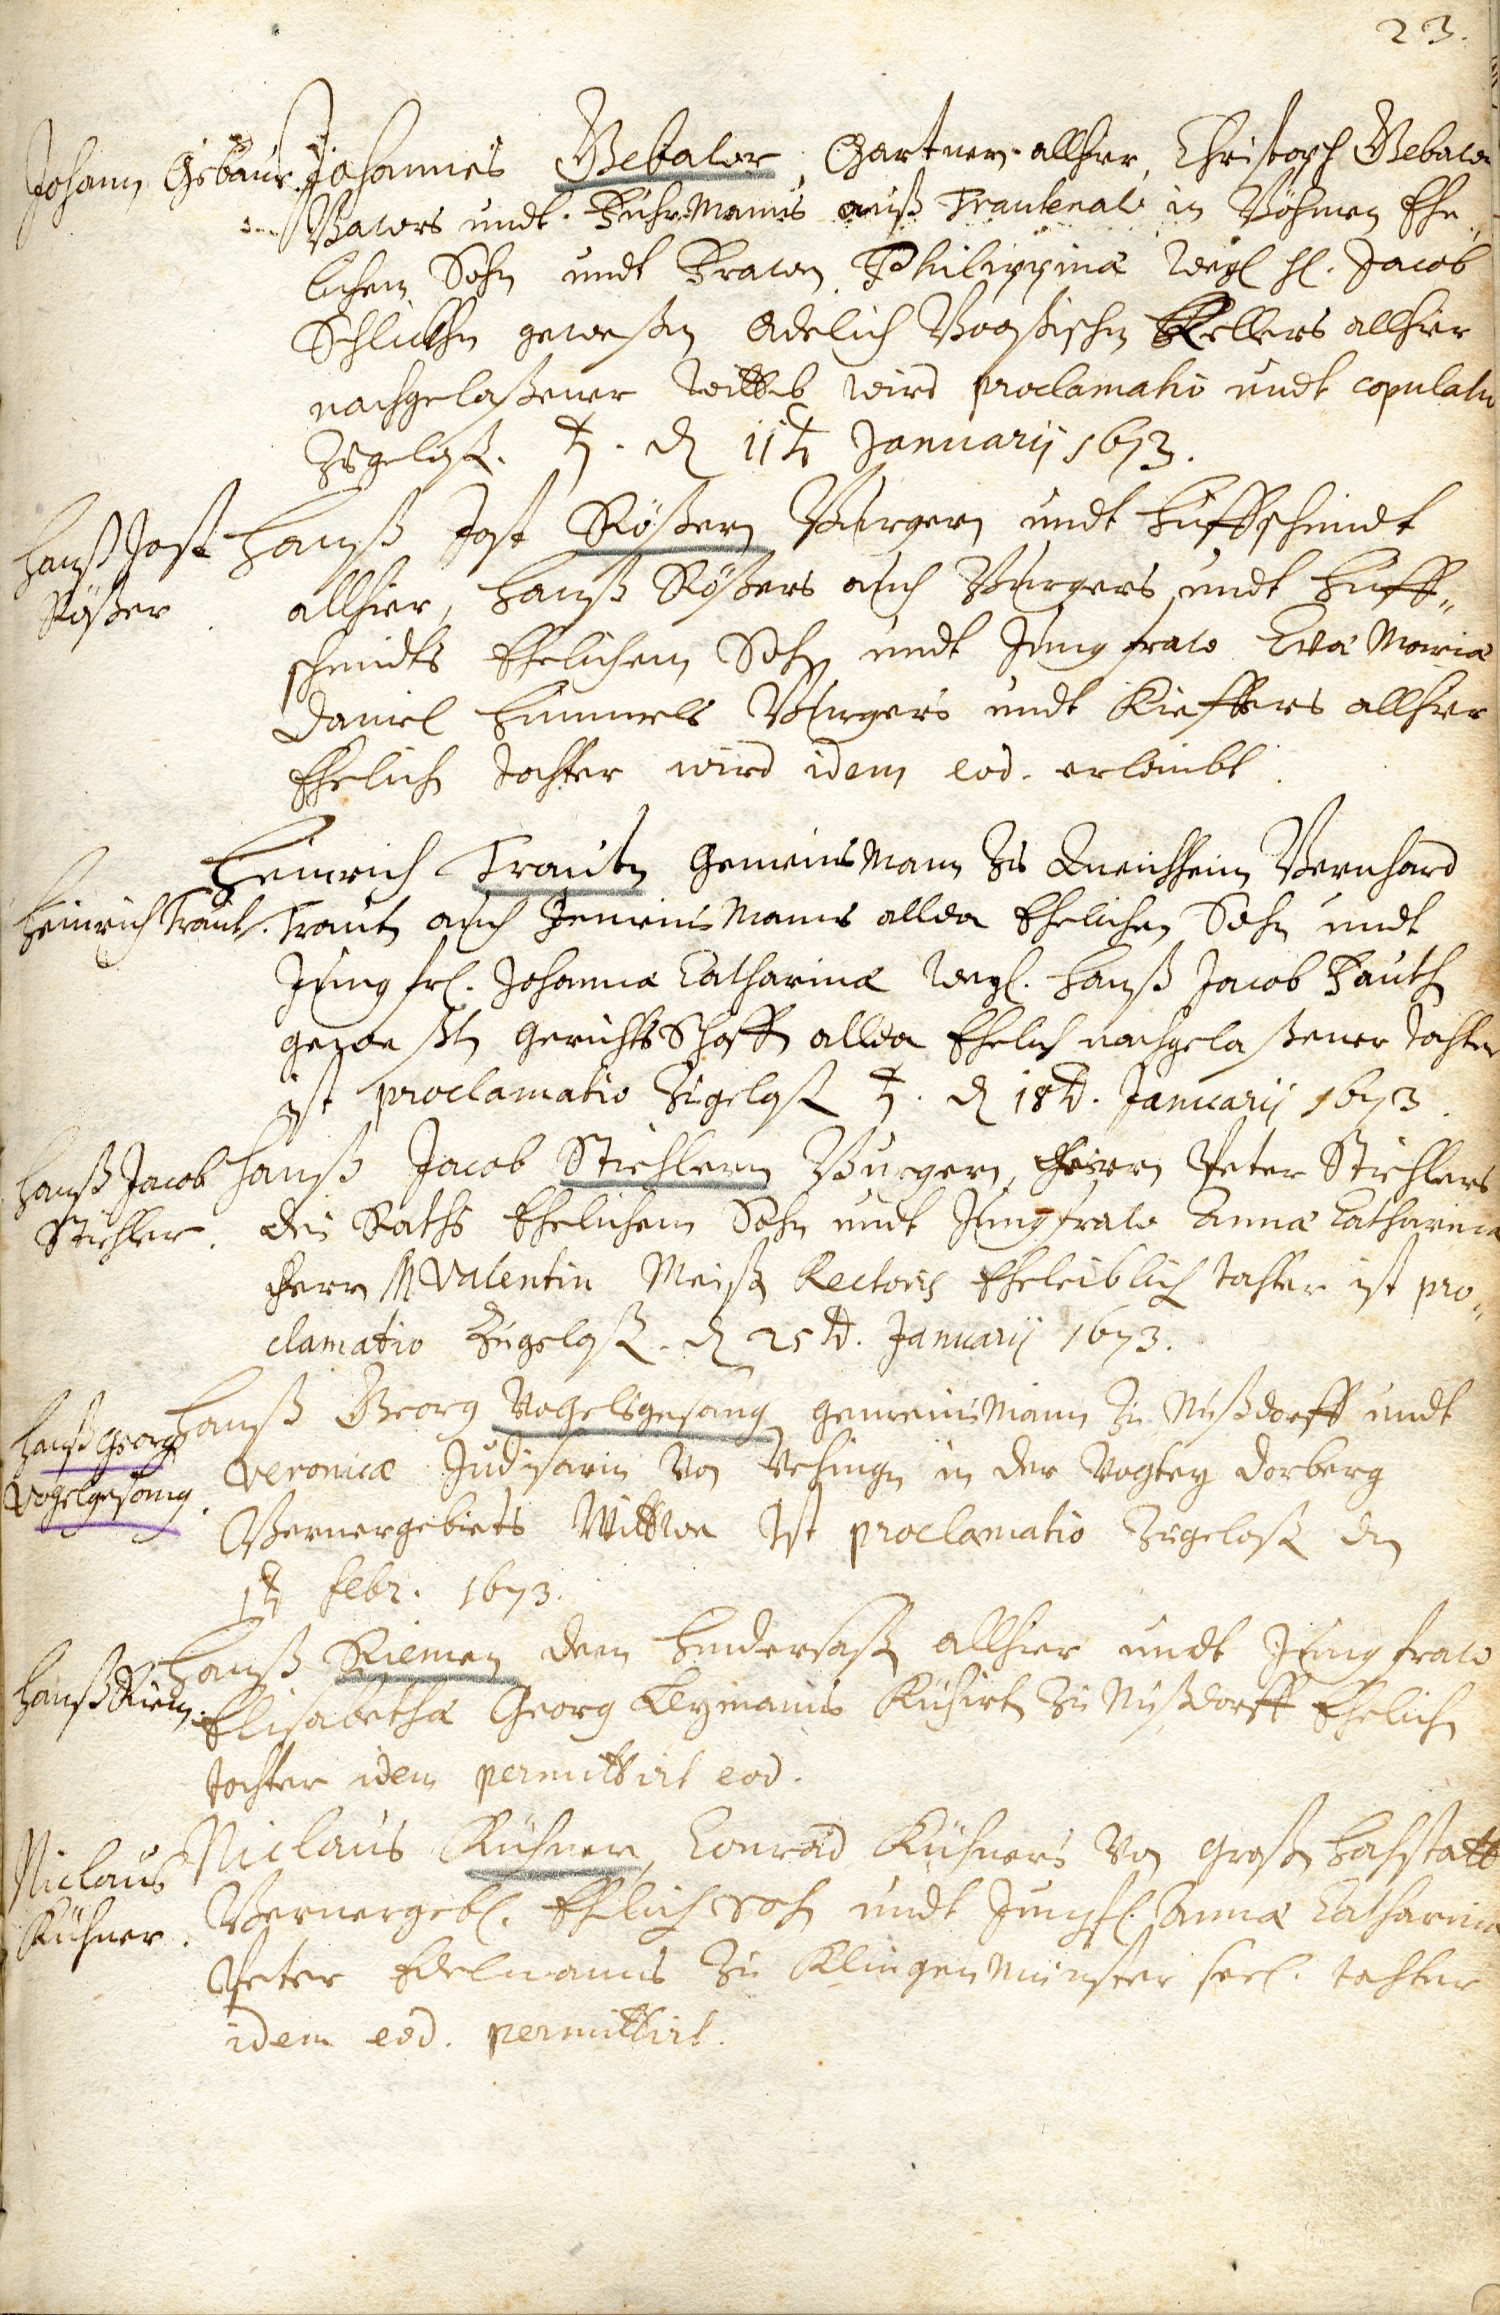 23.
Johann Gebaur. Johannes Gebawr, Gartner allhier, Christoph Gebawrs
Bawrs undt Fuhrmanns auß Trautenaw in Böhmen Ehe„
lichem Sohn undt Frawen Philippinæ Weyl. H. Jacob
gewesen Adelich Kellers allhier
nachgelaßener Wittib wird proclamatio undt copulatio
Zugelaß. ♄. d. 11t. Januarij 1673.
Hanß Jost Rößer
Hanß Jost Rößern Burgern undt Huffschmidt
allhier, Hanß Rößers auch Burgers undt Huff„
schmidts Ehelichem Sohn undt Jungfraw Eva Maria
Daniel Himmels Burgers undt Kieffers allhier
Ehelich Tochter wird idem eod. erlaubt.
Heinrich Traut.
Heinrich Trauten Gemeinsmann Zu Queichheim Bernhard
Trauten auch Gemeinsmanns allda Ehelichen Sohn undt
Jungfr. Johanna Catharina Weyl. Hanß Jacob Fauth
geweßten Gerichts Schöffen allda Ehelich nachgelaßener Tochter
ist proclamatio Zugelaß ♄. d. 18t. Januarij 1673.
Hanß Jacob Stichler.
Hanß Jacob Stichlern Burgern, Herrn Peter Stichlers
des Raths Ehelichem Sohn undt Jungfraw Anna Catharina
Herrn M Valentin Meiß Rectoris Eheleiblich Tochter ist pro„
clamatio Zugelaß. d. 25t. Januarij 1673.
Hanß Georg Vogelgesang.
Hanß Georg Vogelsgesang gemeinsmann Zu Nußdorff undt
Veronica von in der Vogtey Dorberg
Bernergebiets Wittwe Ist proclamatio Zugelaß den
1t. Febr. 1673.
Hanß Riem.
Hanß Riemen dem Hindersaß allhier undt Jungfraw
Elisabetha Georg Leymanns Kühirt Zu Nußdorff Ehelich
Tochter idem permittirt eod.
Niclaus Kühner.
Niclaus Kühner, Conrad Kühners von Groß
Bernergeb. Ehelich Sohn undt Jungfr. Anna Catharina
Peter Edelmanns Zu Klingenmünster seel. Tochter
idem eod. permittirt.